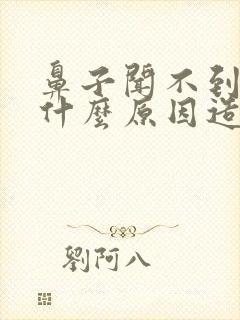 鼻子聞不到
什麼原因造
劉阿八